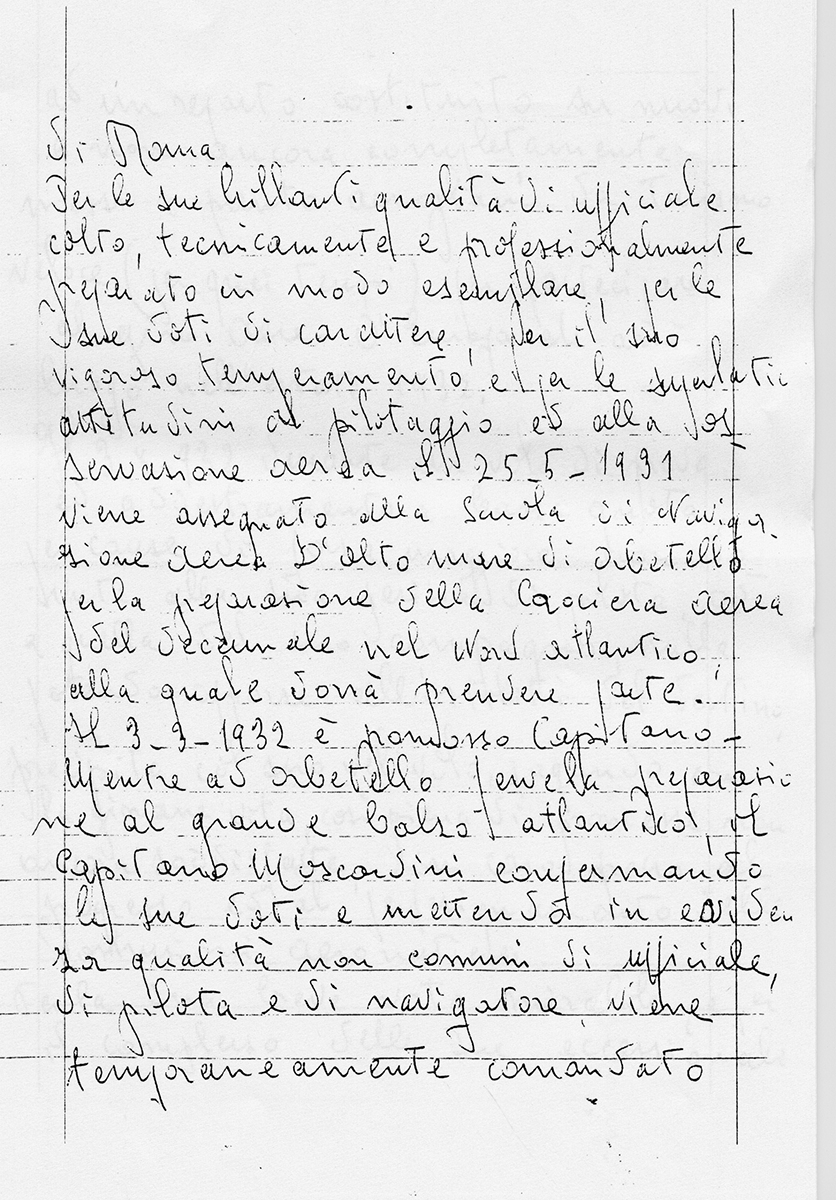 di Roma.
Per le sue brillanti qualità di ufficiale
colto, tecnicamente e professionalmente
preparato in modo esemplare, per le
sue doti di carattere, per il suo
vigoroso temperamento e per le superlative
attitudini al pilotaggio ed alla os
servazione aerea il 25-5-1931
viene assegnato alla Scuola di Naviga
zione aerea D'alto mare di Orbetello
per la preparazione della Crociera aerea
del decennale nel Nord atlantico,
alla quale dovrà prendere parte.
Il 3-3-1932 è promosso Capitano-
Mentre ad Orbetello ferve la preparazio
ne al grande balzo atlantico, il
Capitano Moscardini confermando
le sue doti e mettendo in eviden
za qualità non comuni di ufficiale,
di pilota e di navigatore, viene
temporaneamente comandato